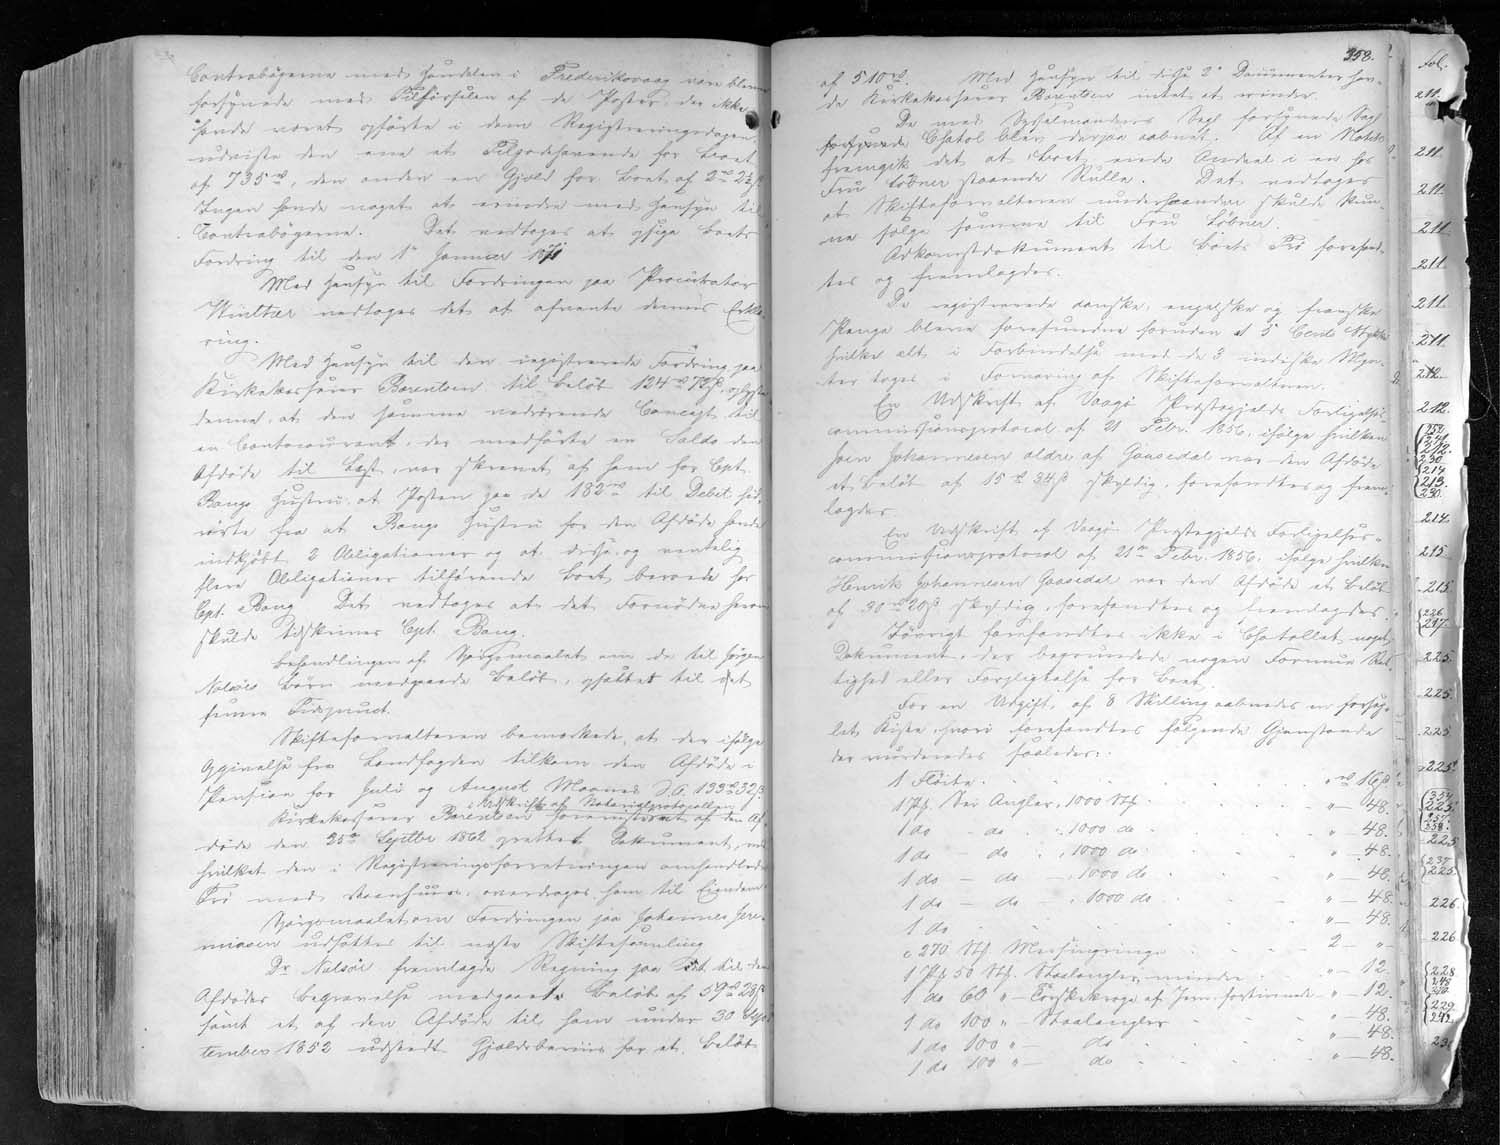 Contrabøgerne med Handelen i Frederiksvaag vare bleven
forsynede med Tilførselen af de Poster, der ikke
havde været opførte i dem Registreringsdagen,
udviste den ene et Tilgodehavende for Boet
af 735 rd, den anden en Gjæld for Boet af 2 rd 2½ ß
Ingen havde noget at erindre med Hensyn til
Contrabøgerne. Det vedtoges at opsige Boets
Fordring til den 1ste Januar 1871
Med Hensyn til Fordringen paa Procurator
Winther vedtoges det at afvente dennes Erklæ-
ring.
Med Hensyn til den registrerede Fordring paa
Kirkekasserer Barentsen til Beløb 124 rd 72 ß, oplyste
denne, at den samme vedrørende Concept til
en Contocourant, der medførte en Saldo den
Afdøde til Last, var skrevet af ham for Cpt.
Bangs Hustru, at Posten paa de 182 rd til Debet hid-
rørte fra at Bangs Hustru for den Afdøde havde
indkjøbt 2 Obligationer og at disse og ventelig
flere Obligationer tilhørende Boet beroede hos
Cpt. Bang. Det vedtoges at det Fornødne herom
skulde tilskrives Cpt. Bang.
Behandlingen af Spørgsmaalet om de til Jørgen
Nolsøes Børn medgaaede Beløb, opsattes til det
senere Tidspunct.
Skifteforvalteren bemærkede, at der ifølge
Opgivelse fra Landfogden tilkom den Afdøde i
Pension for Juli og August Maaned d.A. 133 rd 32 ß
i Udskrift af Notarialprotocollen
Kirkekasserer Barentsen foreviste et af den Af-
døde den 25de Septbr 1862 oprettet Dokument, ved
hvilket den i Registreringsforretningen omhandlede
Trø med Steenhuus, overdroges ham til Eiendom
Spørgsmaalet om Fordringen paa Johannes Jere-
miasen udsattes til næste Skiftesamling
Dr. Nolsøe fremlagde Regning paa det til den
Afdødes Begravelse medgaaede Beløb af 59 rd 28 ß
samt et af den Afdøde til ham under 30 Sep-
tember 1852 udstedt Gjældsbeviis for et Beløb
358.
af 510 rd. Med Hensyn til disse 2de Documenter hav-
de Kirkekasserer Barentsen intet at erindre.
De med Sysselmandens Segl forsynede
Chatol blev derpaa aabnet. Af en Notits
fremgik det at Boet eiede Andeel i en hos
Fru Løbner staaende Rulle. Det vedtoges
at Skifteforvalteren underhaanden skulde kun-
ne sælge samme til Fru Løbner.
Adkomstdokument til Boets Trø forefand-
tes og fremlagdes.
De registrerede danske, engelske og franske
Penge bleve forefundne foruden et 5 Cents Stykke
hvilke alt i Forbindelse med de 3 indiske Myn-
ter toges i Forvaring af Skifteforvalteren.
En Udskrift af Vaagø Præstegjelds Forligelses-
commissionsprotocol af 21 Febr. 1856, ifølge hvilken
Joen Johannesen ældre af Gaasedal var den Afdøde
et Beløb af 15 rd 34 ß skyldig, forefandtes og frem-
lagdes
En Udskrift af Vaagø Præstegjelds Forligelses-
commissionsprotocol af 21de Febr. 1856, ifølge hvilken
Henrik Johannesen Gaasedal var den Afdøde et Beløb
af 30 rd 20 ß skyldig, forefandtes og fremlagdes.
Iøvrigt forefandtes ikke i Chatollet noget
Dokument, der begrundede nogen Formue Ret-
tighed eller Forpligtelse for Boet.
For en Udgift, af 8 Skilling aabnedes en forseg-
let Kiste, hvori forefandtes følgende Gjenstande
der vurderedes saaledes:
1 Fløite . . . " rd 16 ß
1 Pk. Sei Angler, 1000 Stk . . " — 48.
1 do — do — , 1000 do . . " — 48.
1 do — do — , 1000 do . . " — 48.
1 do — do — , 1000 do . . " — 48.
1 do — do — , 1000 do . . " — 48.
1 do . . . " — 48.
c 270 Stk Messingringe . . 2 — "
1 Pk 50 Stk. Staalangler, mindre . . " — 12.
1 do 60 " — Torskekroge af Jern, fortinnede — " — 12.
1 do 100 " — Staalangler . . " — 48.
1 do 100 " — do . . " — 48.
1 do 100 " — do . . " — 48.
Fol.
211.
211.
211.
211.
211.
211.
211.
212.
212.
241.
212.
230.
214.
213.
230.
214.
215.
215.
226.
217.
225.
225.
225.
225.
354
223.
357
358.
225
237
225.
226.
226
228
248
229.
242.
23